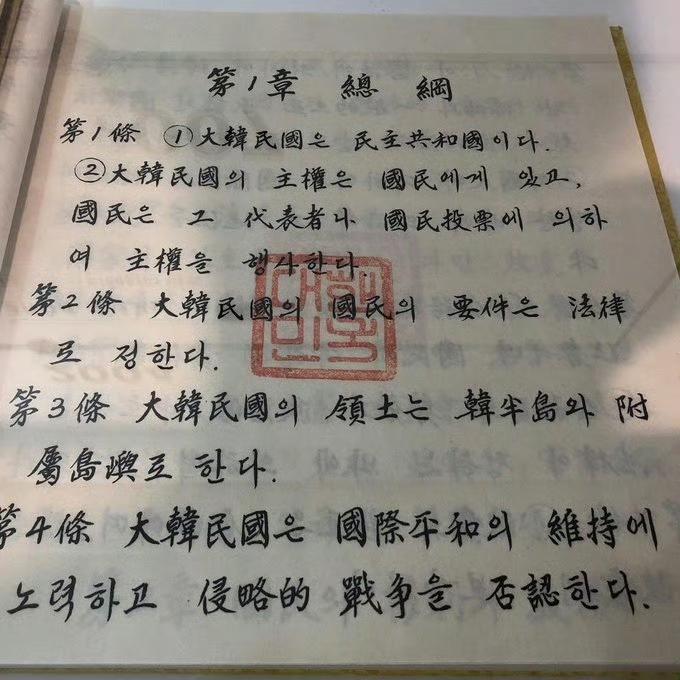 第1章 總綱
第1條 ①大韓民國은 民主共和國이다.
②大韓民國의 主權은 國民에게 있고,
國民은 그 代表者나 國民投票에 의하
여 主權을 행사한다.
第2條 大韓民國의 國民의 要件은 法律
로 정한다.
第3條 大韓民國의 領土는 韓半島와 附
屬島嶼로 한다.
第4條 大韓民國은 國際平和의 維持에
노력하고 侵略的 戰争을 否認한다.
대한민국